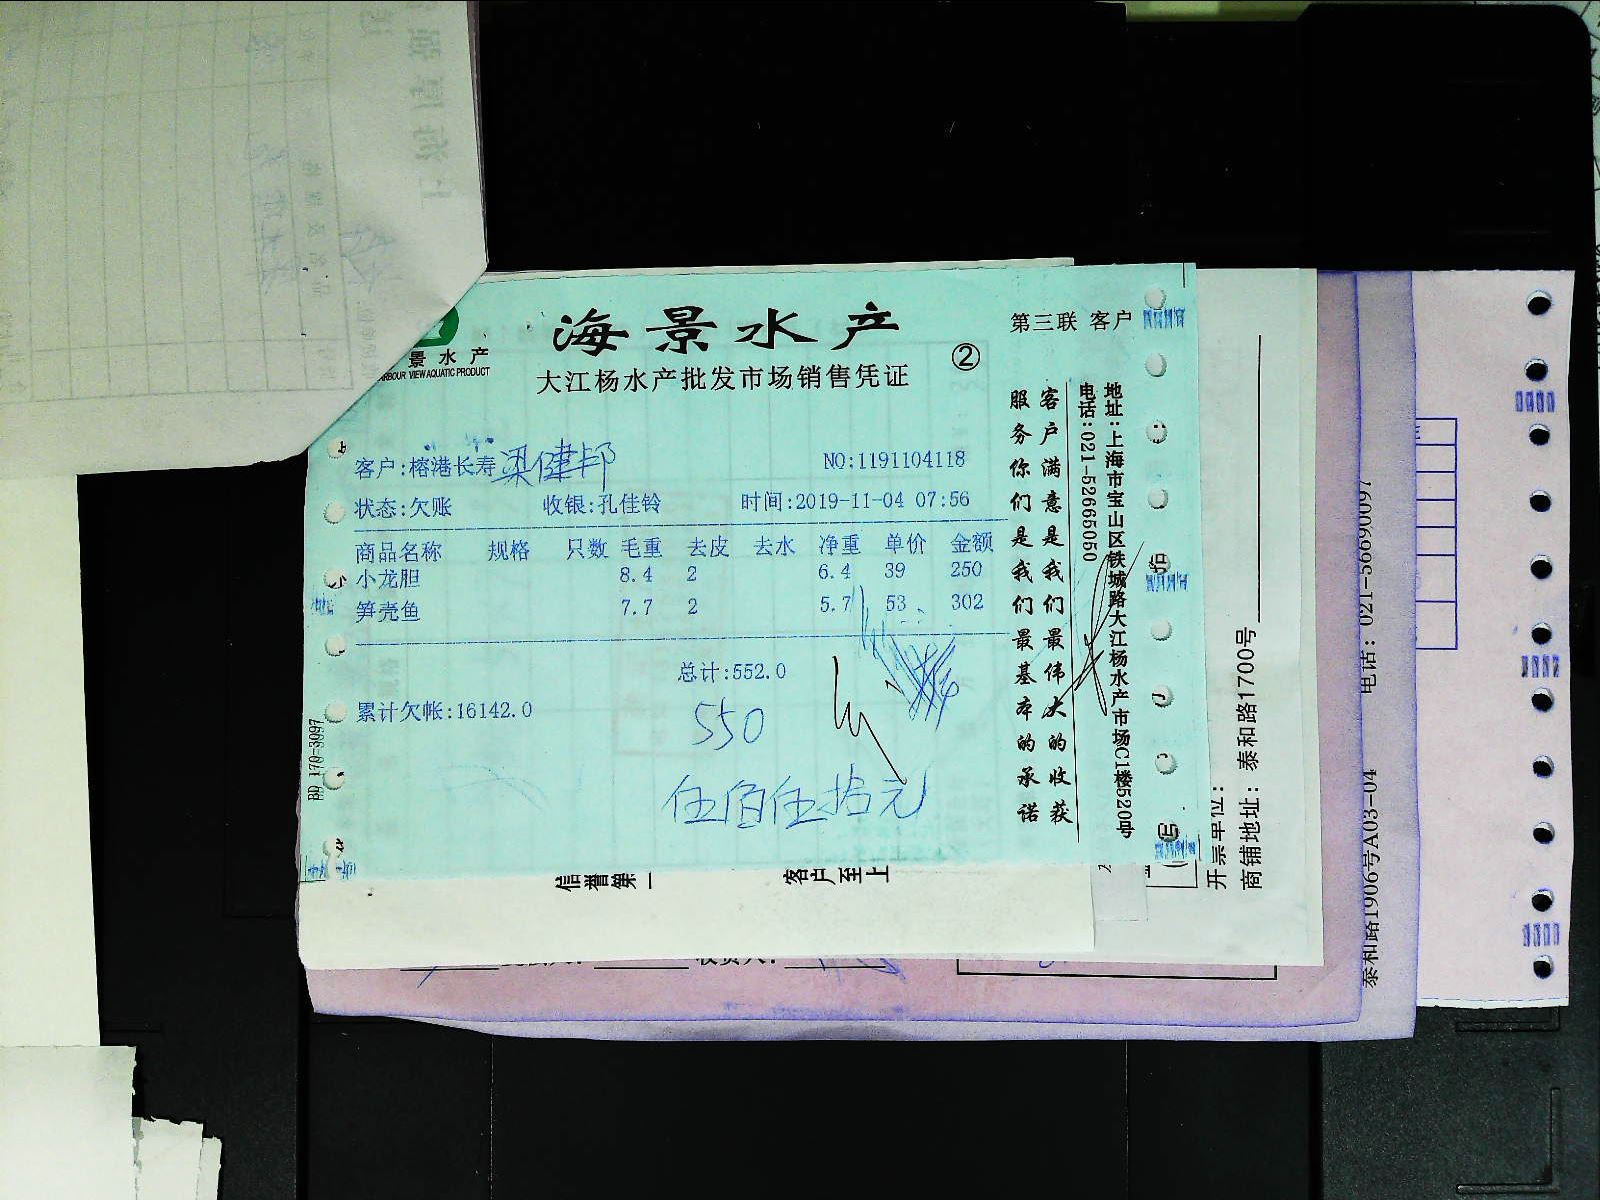 海景水产
第三联 客户
景水产
RBOUR VIEW AQUATIC PRODUCT
②
大江杨水产批发市场销售凭证
客户:榕港长寿 梁健邦
NO:1191104118
状态:欠账 收银:孔佳铃 时间:2019-11-04 07:56
商品名称 规格 只数 毛重 去皮 去水 净重 单价 金额
小龙胆 8.4 2 6.4 39 250
笋壳鱼 7.7 2 5.7 53 302
总计:552.0
累计欠帐:16142.0
550
伍佰伍拾元
客户满意是我们最伟大的收获
服务你们是我们最基本的承诺
地址:上海市宝山区铁城路大江杨水产市场C1楼520号
电话:021-52665050
BD 170-3097
信誉第一
客户至上
开票单位:
商铺地址: 泰和路1700号
泰和路1906号A03-04
电话: 021-56690097
收货人: